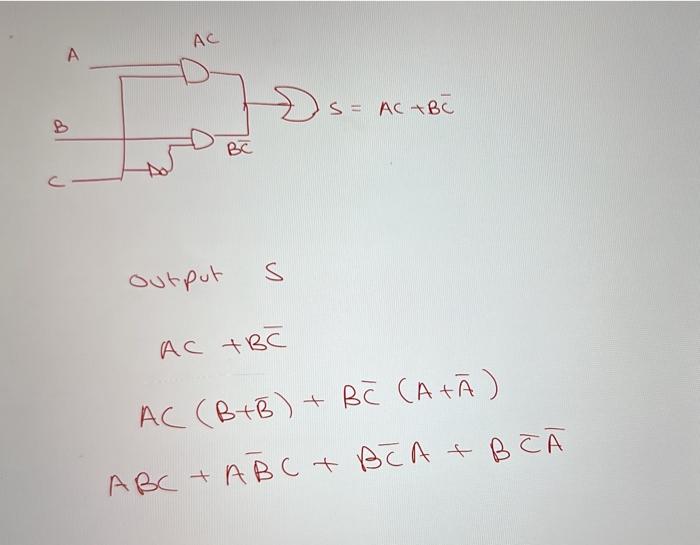 AC
A
S = AC + BC̅
B
BC̅
C
output S
AC + BC̅
AC (B+B̅) + BC̅ (A+A̅)
ABC + AB̅C + BC̅A + BC̅A̅